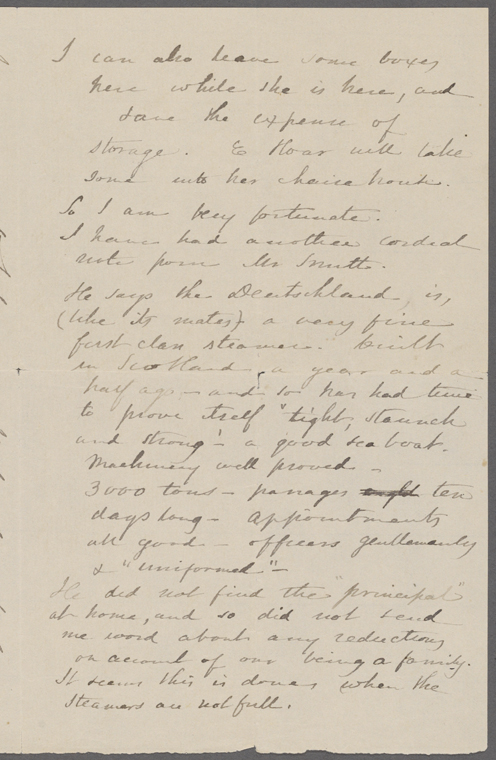 I can also leave some boxes
here while she is here, and
save the expense of
storage. E Hoar will take
some into her chaise house.
So I am very fortunate.
I have had another cordial
note from Mr Smith.
He says the Deutschland, is,
(like its mates) a very fine
first class steamer. built
in Scotland, a year and a
half ago - and so has had time
to prove itself "tight, staunch
and strong" - a good sea boat.
Machinery well proved -
3000 tons - passages ten
days long - appointments
all good - officers gentlemanly
& "uniformed" -
He did not find the "principal"
at home, and so did not send
me word about any reduction
on account of our being a family.
It seems this is done, when the
steamers are not full.